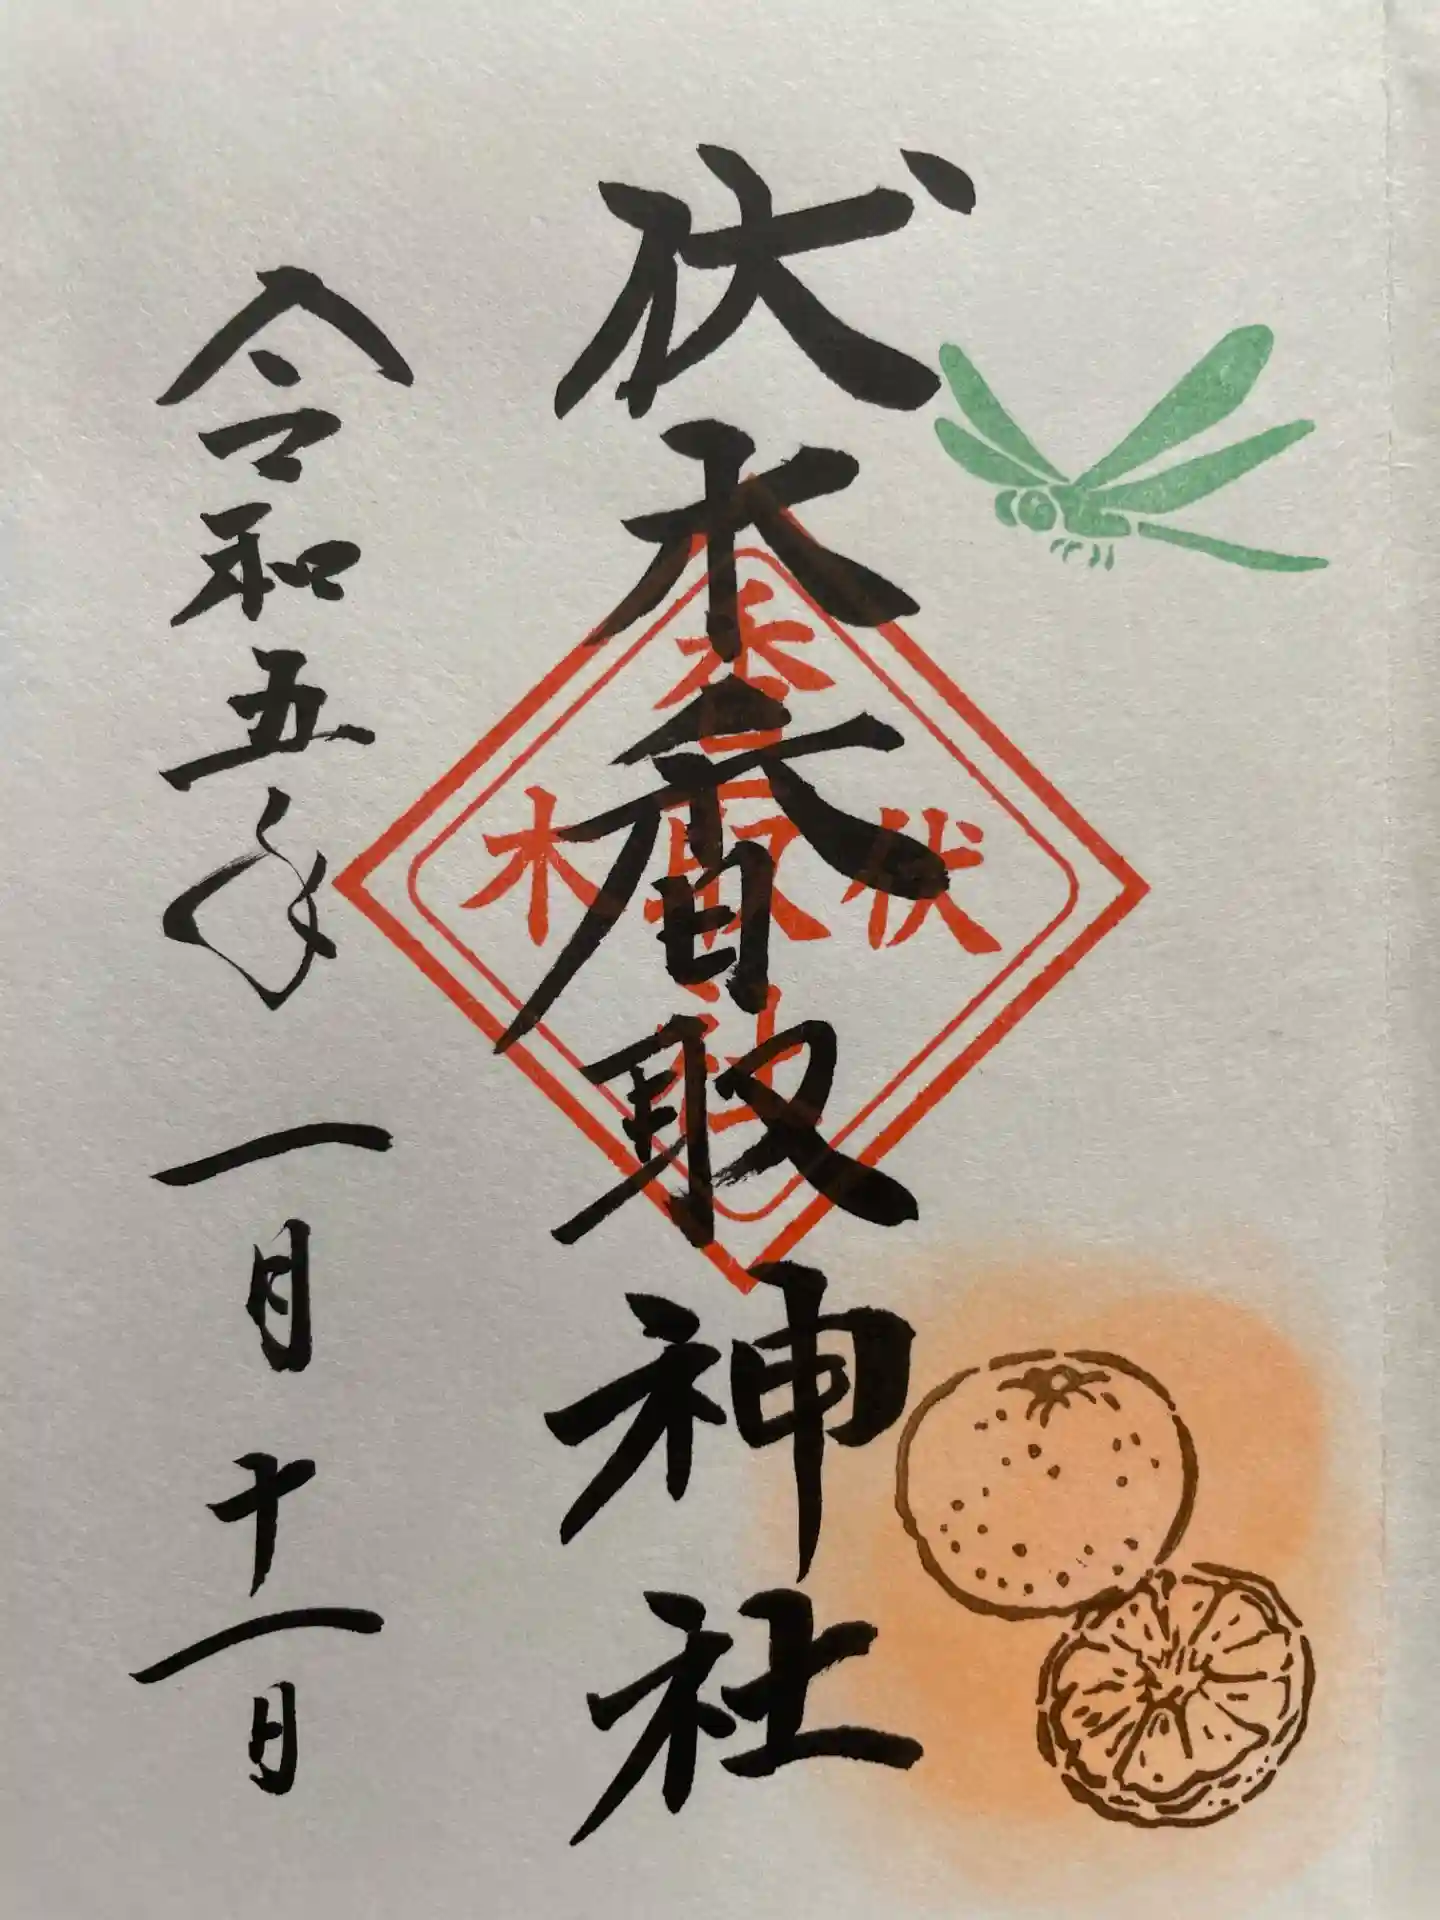 伏木香取神社
伏
香取社
木
令和五年一月十一日